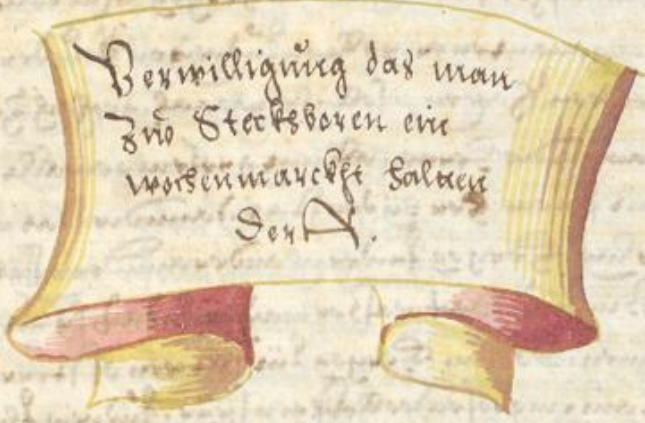 Verwilligung das man
zuo Stecksboren ein
wochenmarckht halten
Der A.